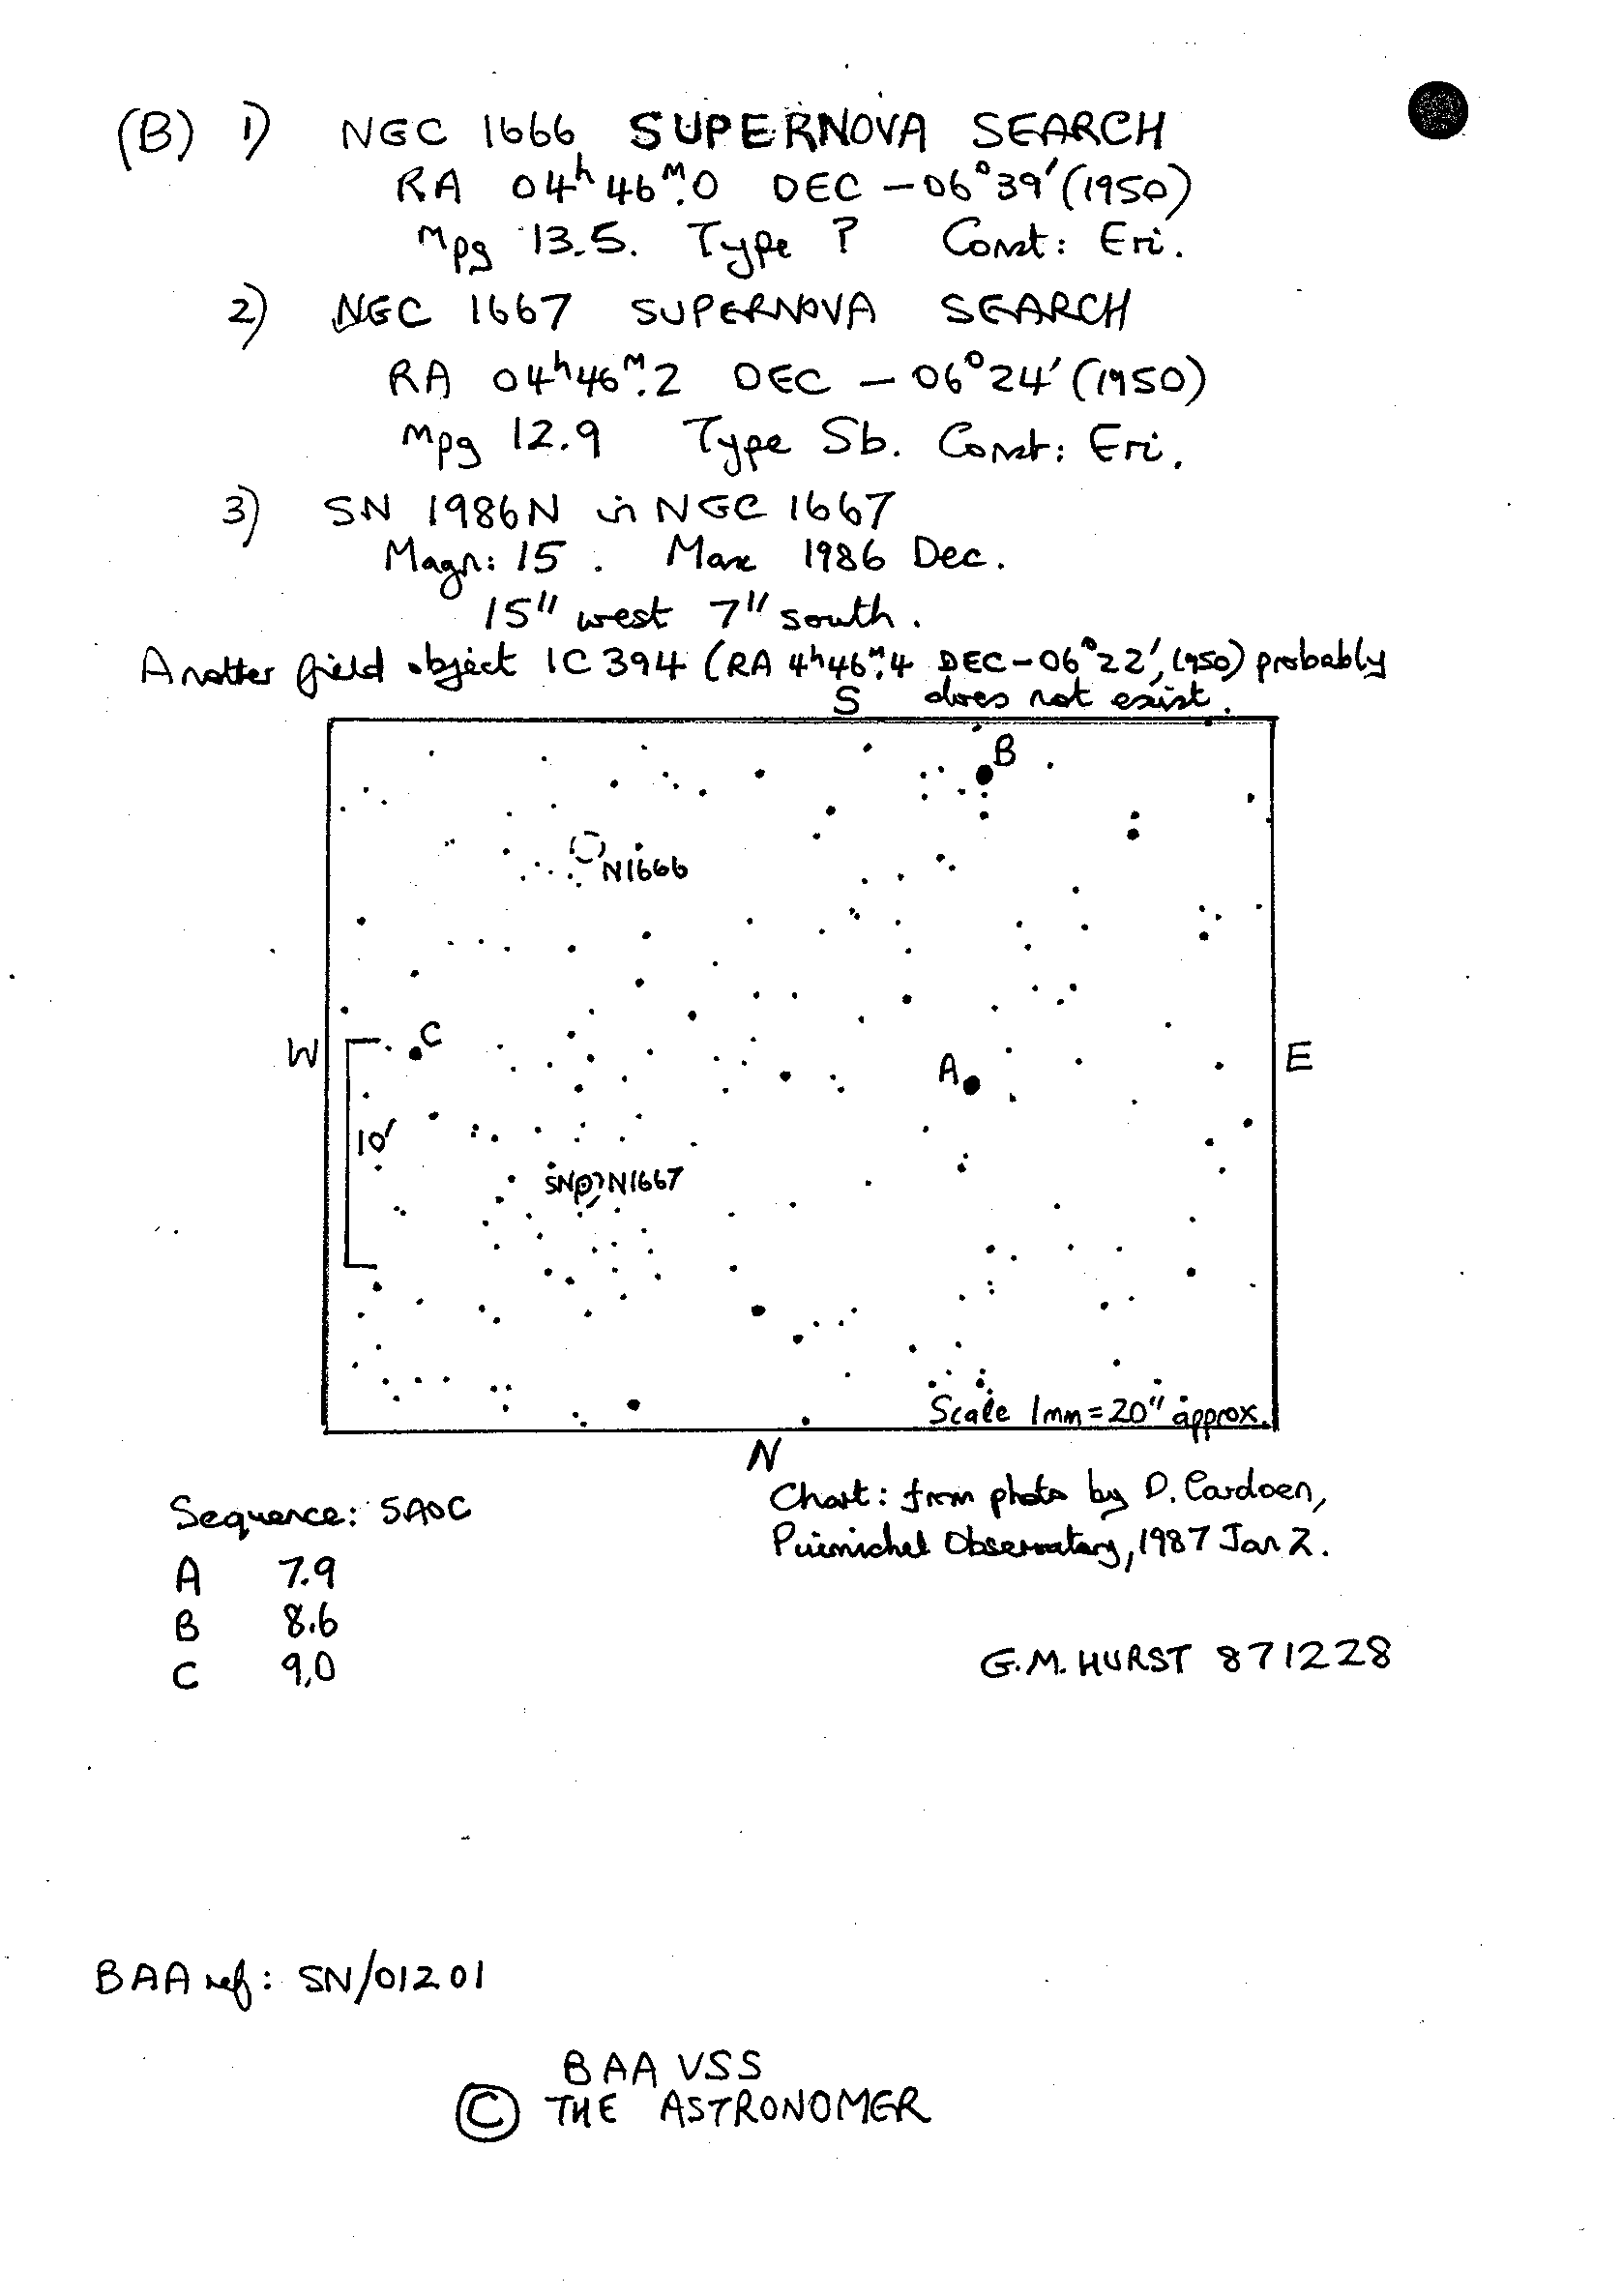 (B) 1) NGC 1666 SUPERNOVA SEARCH
RA 04h 46m.0 DEC -06°39' (1950)
mpg 13.5. Type ? Const: Eri.
2) NGC 1667 SUPERNOVA SEARCH
RA 04h 46m.2 DEC -06°24' (1950)
mpg 12.9 Type Sb. Const: Eri.
3) SN 1986N in NGC 1667
Magn: 15. Max 1986 Dec.
15" west 7" south.
Another field object IC 394 (RA 4h46m.4 DEC-06°22', 1950) probably
does not exist.
S
B
N1666
W
C
A
E
10'
SN N1667
Scale 1mm=20" approx.
N
Chart: from photo by D. Cardoen,
Puimichel Observatory, 1987 Jan 2.
Sequence: SAOC
A 7.9
B 8.6
C 9.0
G.M. HURST 871228
BAA ref: SN/01201
BAA VSS
© THE ASTRONOMER